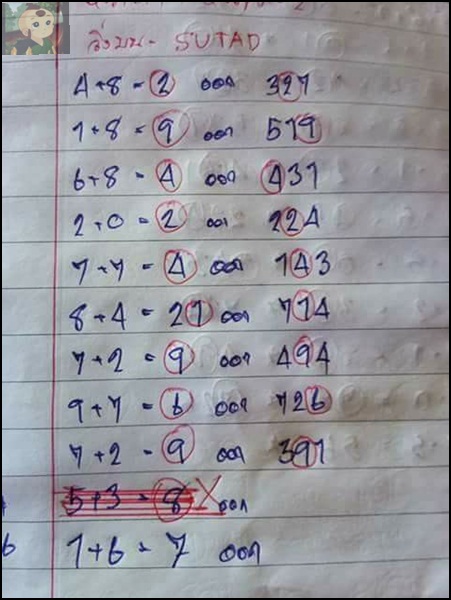 วิ่งบน - SUTAD
4+8 = 2 ออก 321
1+8 = 9 ออก 519
6+8 = 4 ออก 431
2+0 = 2 ออก 224
7+7 = 4 ออก 143
8+4 = 21 ออก 714
7+2 = 9 ออก 494
9+7 = 6 ออก 726
7+2 = 9 ออก 391
5+3 = 8 X ออก
6 1+6 = 7 ออก